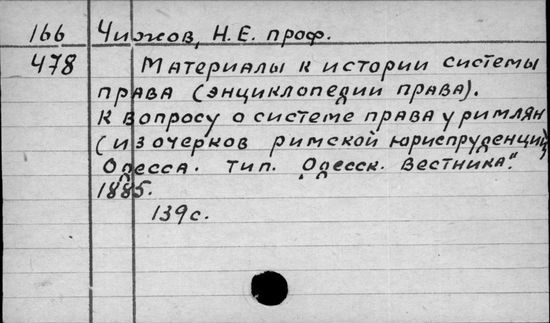 166 Чижов, Н.Е. проф.
478 Материалы к истории системы
права (энциклопедии права).
К вопросу о системе права у римлян
(из очерков римской юриспруденции)
Одесса. тип. „Одесск. Вестника“.
1885.
139с.